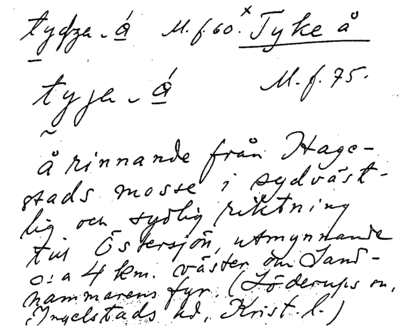 tydza-á M.f.60.× Tyke å
tyja-á M.f.75.
å rinnande från Hage-
stads mosse i sydväst-
lig och sydlig riktning
till Östersjön, utmynnande
c:a 4 km. väster om Sand-
hammarens fyr. (Löderups sn,
Ingelstads hd, Krist. l.)